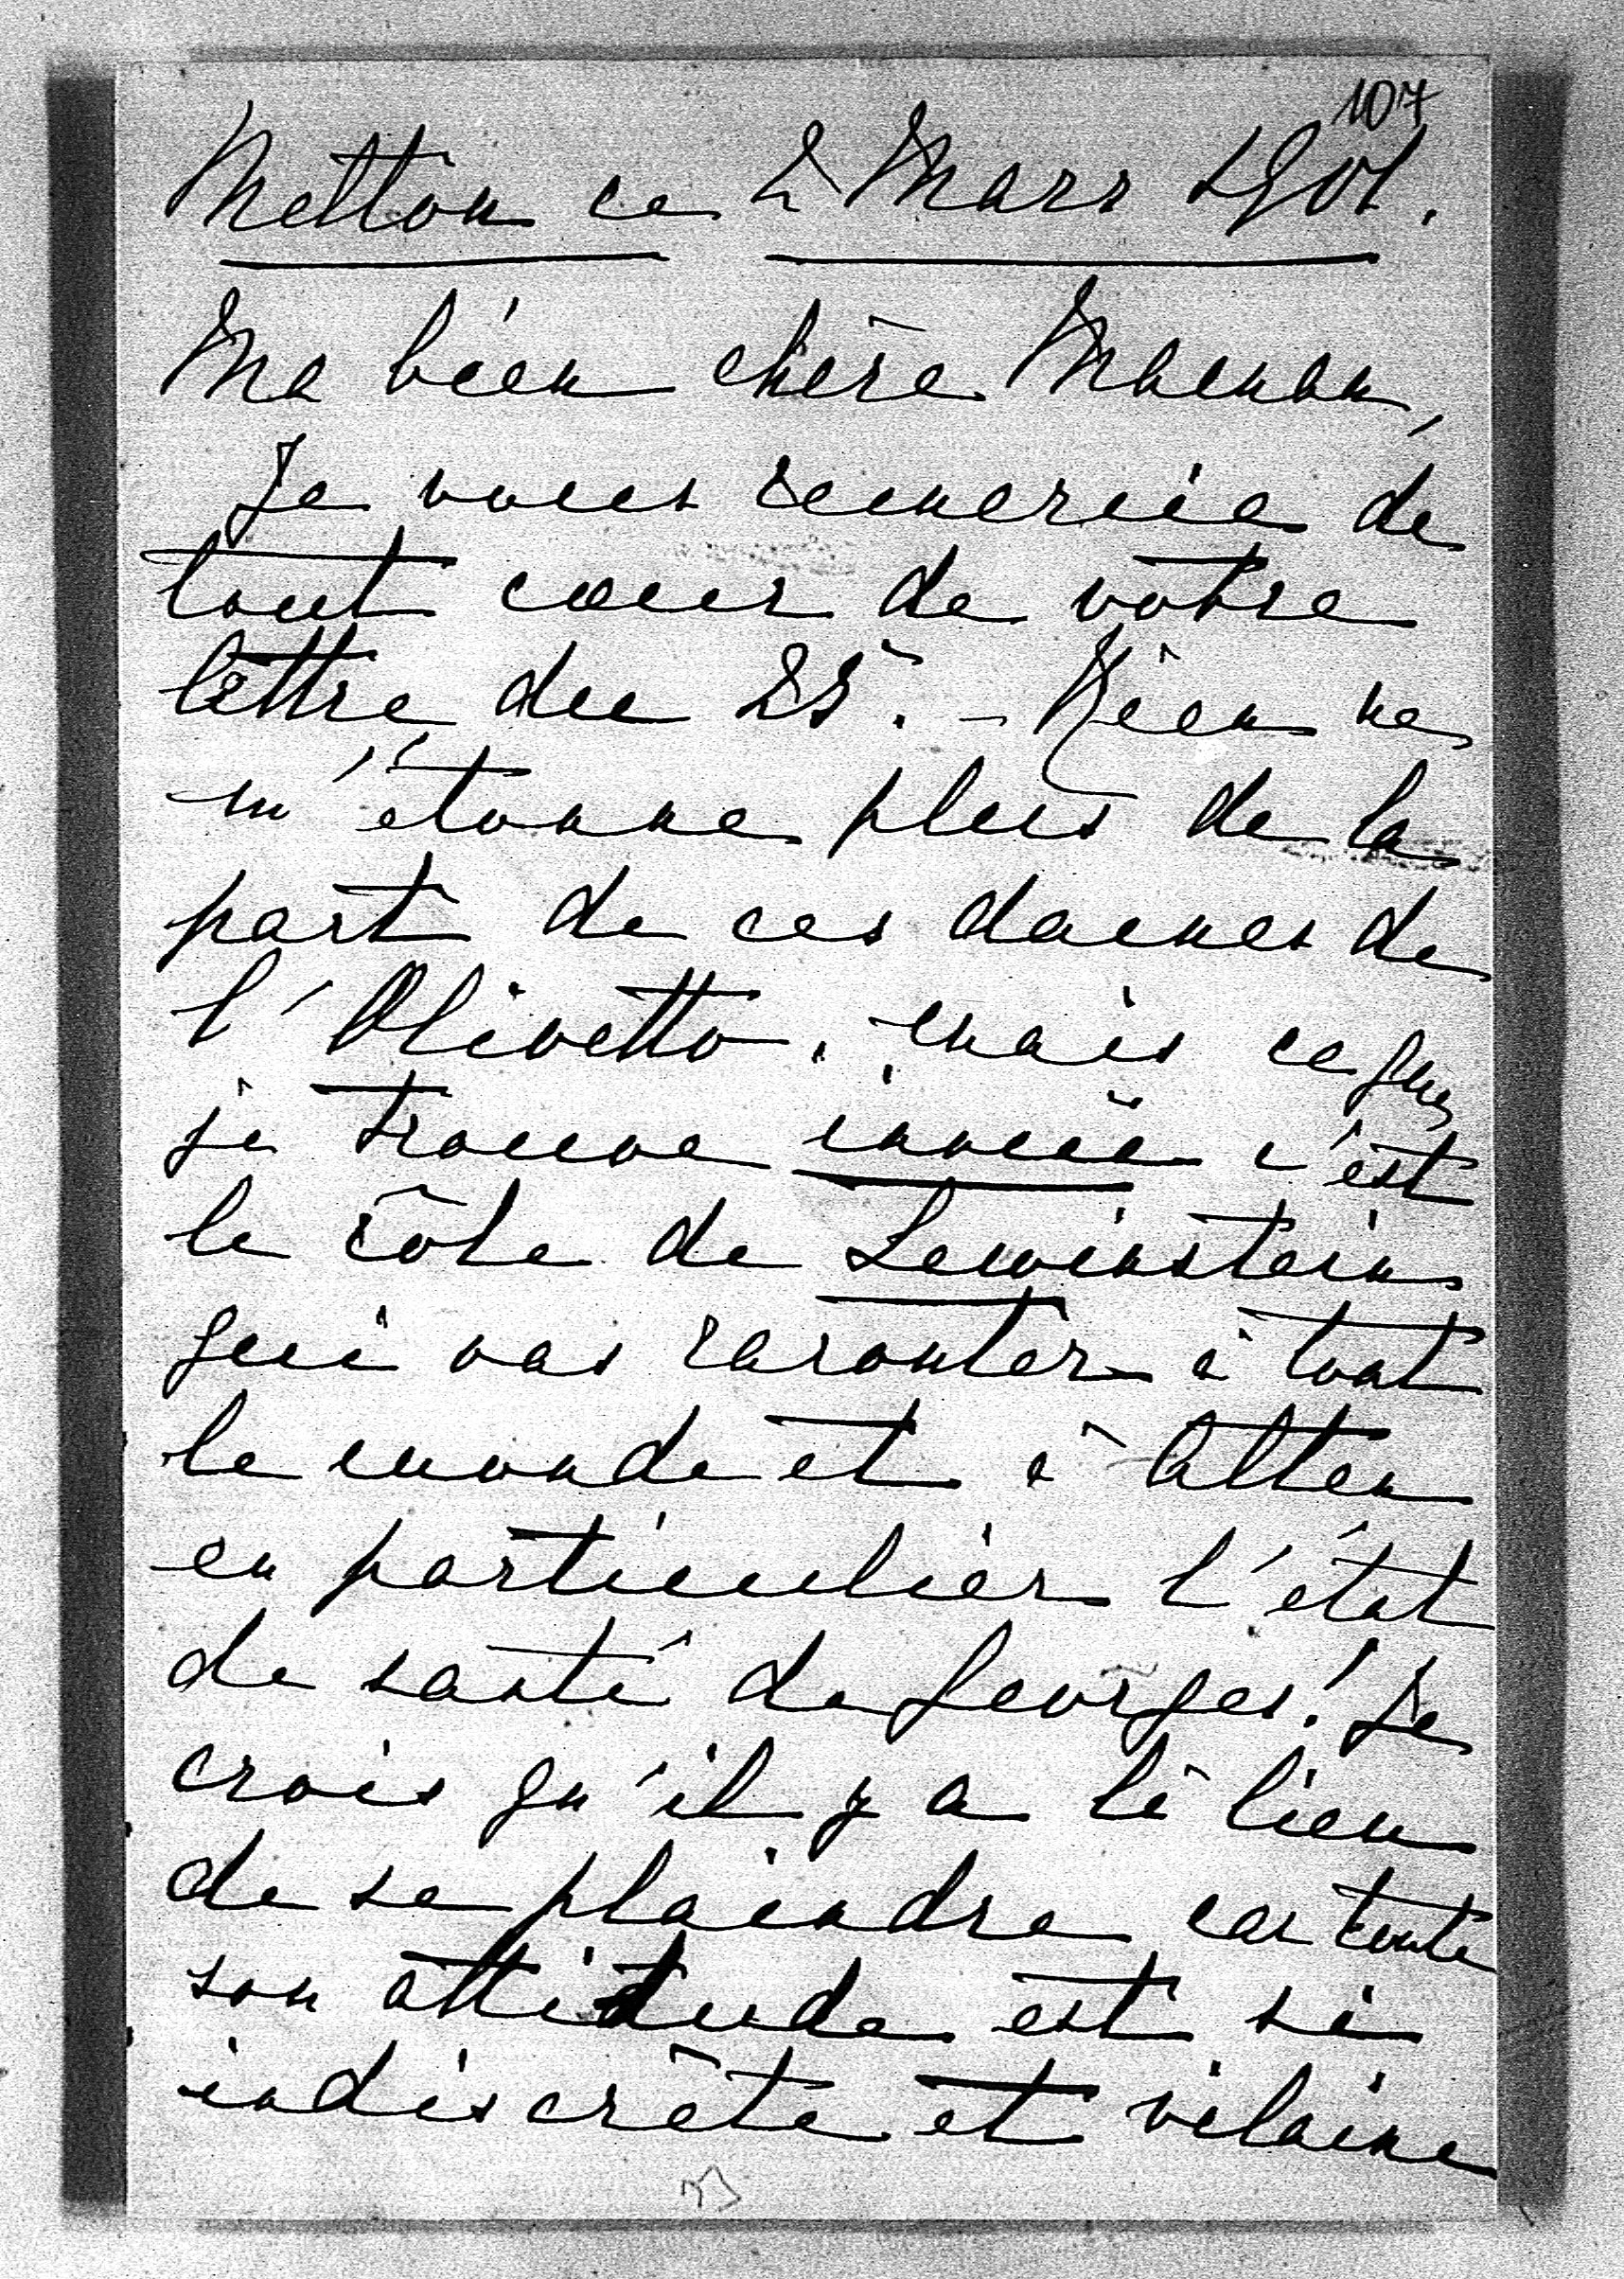 107
Metton ce 2 Mars 1901.
Ma bien chère Maman,
Je vous remercie de
tout coeur de votre
lettre du 25. - Rien ne
m'étonne plus de la
part de ces dames de
l'Olivetto. mais ce que
je trouve inouïe c'est
le rôle de Lewinstein
qui vas raconter à tout
le monde et à Atten
en particulier l'état
de santé de Georges! Je
crois qu'il y a lè lieu
de se plaindre car toute
son attitude est si
indiscrète et vilaine